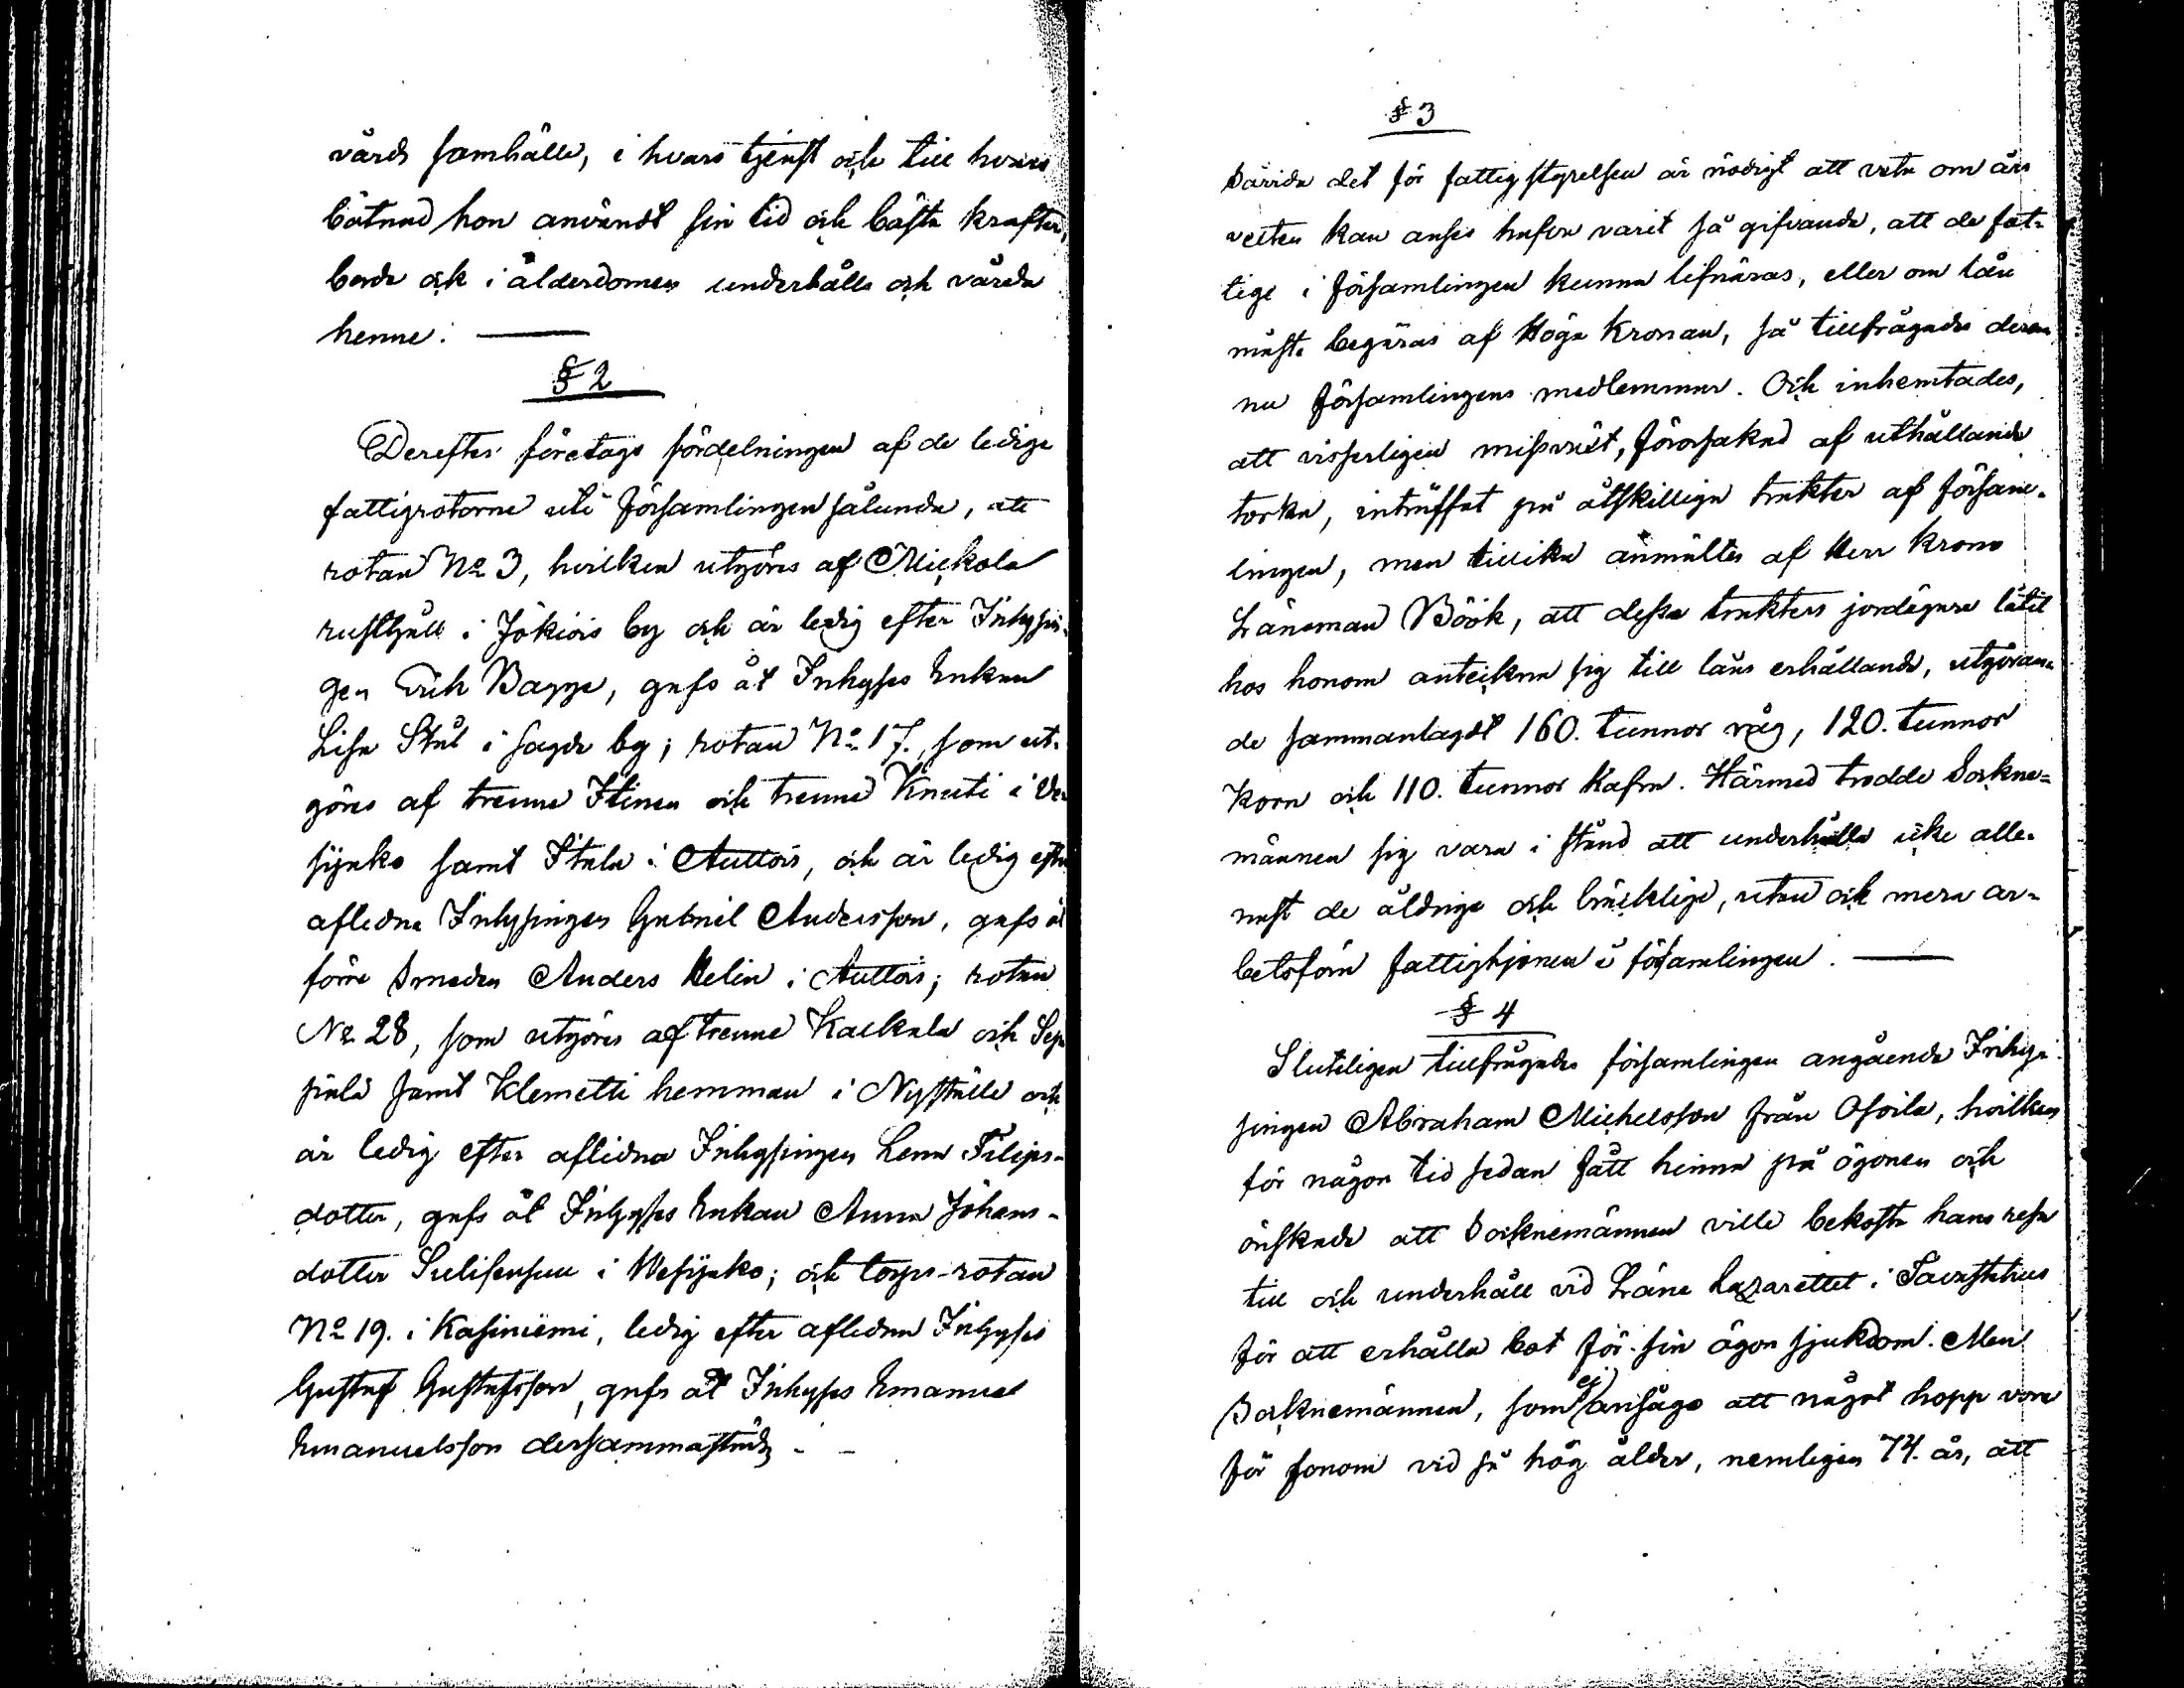 vårds samhälle, i hvars tjenst och till hvars
båtnad hon användt sin tid och bästa krafter,
borde ock i ålderdomen underhålla och vårda
henne. —
§ 2
Derefter företogs fördelningen af de lediga
fattigrotorne uti Församlingen sålunda, att
rotan No 3, hvilken utgöres af Mickola
rusthåll i Jokiois by och är ledig efter Inhysin-
gen Erik Bagge, gafs åt Inhyses Enkan
Lisa Stål i sagde by; rotan No 17., som ut-
göres af trenne Itinen och trenne Knuti i Ve-
synko samt Stala i Auttois, och är ledig efter
aflidna Inhysingen Gabriel Andersson, gafs åt
förre Smeden Anders Helin i Auttois; rotan
No 28, som utgöres af trenne Kaukala och Sep-
pälä samt Klemetti hemman i Nyställe och
är ledig efter aflidna Inhysingen Lena Filips-
dotter, gafs åt Inhyses Enkan Anna Johans-
dotter Sulisensuu i Wesynko; och torps-rotan
No 19. i Kasiniemi, ledig efter aflidna Inhyses
Gustaf Gustafsson, gafs åt Inhyses Emanuel
Emanuelsson dersammastäds. —
§ 3
Såvida det för fattigstyrelsen är nödigt att veta om års
vexten kan anses hafva varit så gifvande, att de fat-
tige i församlingen kunna lifnäras, eller om lån
måste begäras af Höga Kronan, så tillfrågades derom
nu Församlingens medlemmar. Och inhemtades,
att visserligen missväxt, förorsakad af uthållande
torka, inträffat på åtskilliga trakter af försam-
lingen, men tillika anmältes af Herr Krono
Länsman Böök, att dessa trakters jordägare låtit
hos honom anteckna sig till låns erhållande, utgöran-
de sammanlagdt 160. tunnor råg, 120. tunnor
Korn och 110. tunnor Hafra. Härmed trodde Sockne-
männen sig vara i stånd att underhålla icke alle-
nast de åldriga och bräcklige, utan ock mera ar-
betsföra fattighjonen i församlingen. —
§ 4
Slutligen tillfrågades församlingen angående Inhy-
singen Abraham Michelsson från Osoila, hvilken
för någon tid sedan fått hinna på ögonen och
önskade att Socknemännen ville bekosta hans resa
till och underhåll vid Läns Lazarettet i Tavastehus
för att erhålla bot för sin ögon sjukdom. Men
Socknemännen, som ej ansågo att något hopp vore
för honom vid så hög ålder, nemligen 74. år, att